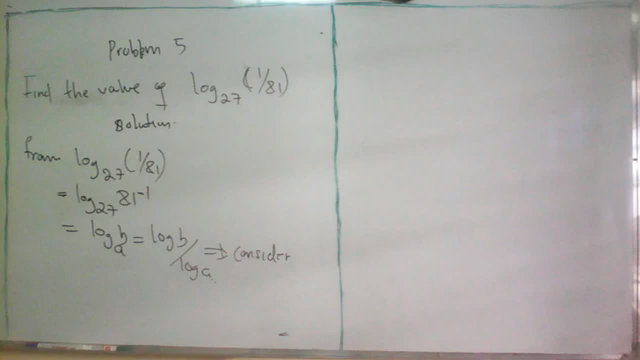 Problem 5
Find the value of log₂₇(1/81)
Solution.
from log₂₇(1/81)
= log₂₇ 81⁻¹
= logₐb = log b/log a ⇒ consider